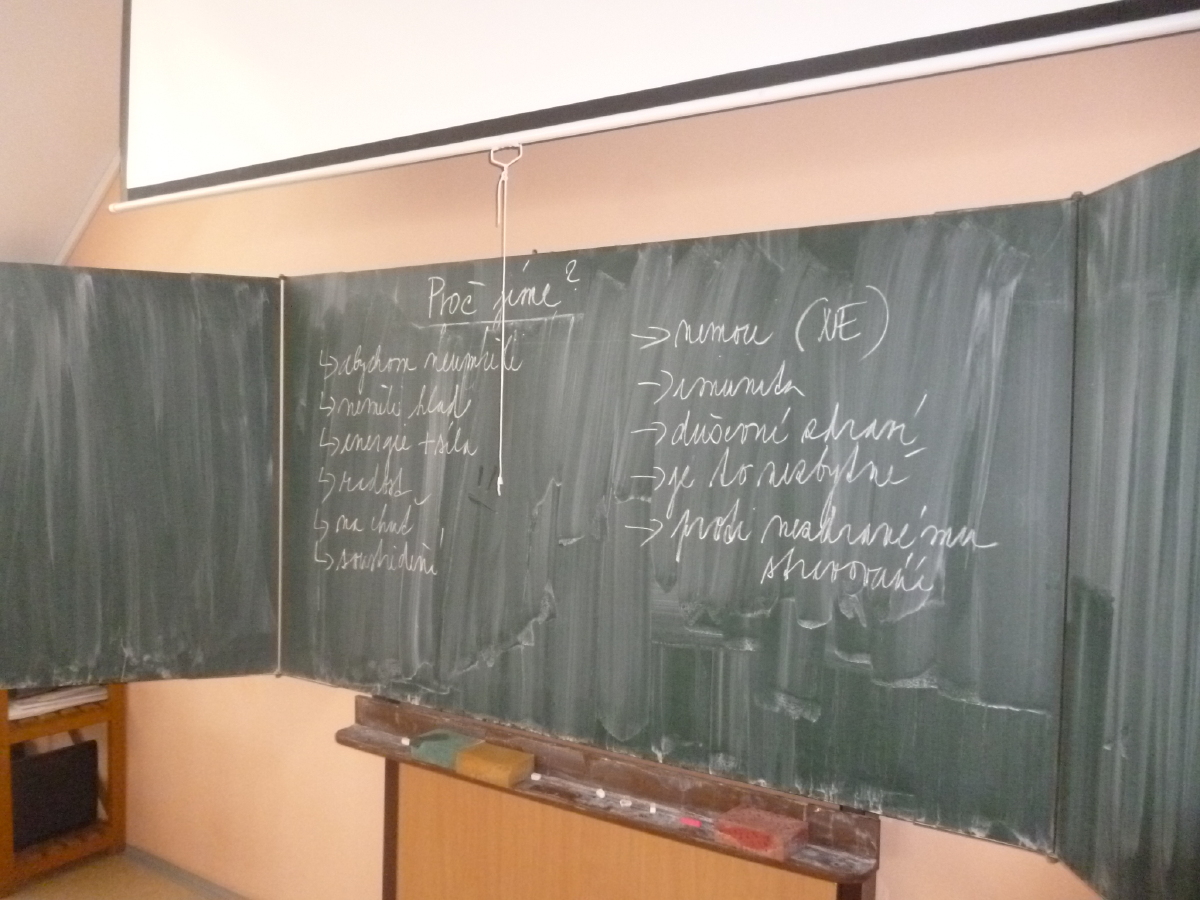 Proč jíme?
↳ abychom neumřeli
↳ neměli hlad
↳ energie + síla
↳ radost
↳ na chuť
↳ soustředění
→ nemoci (NE)
→ imunita
→ duševní zdraví
→ je to nezbytné
→ proti nezdravému
stravování